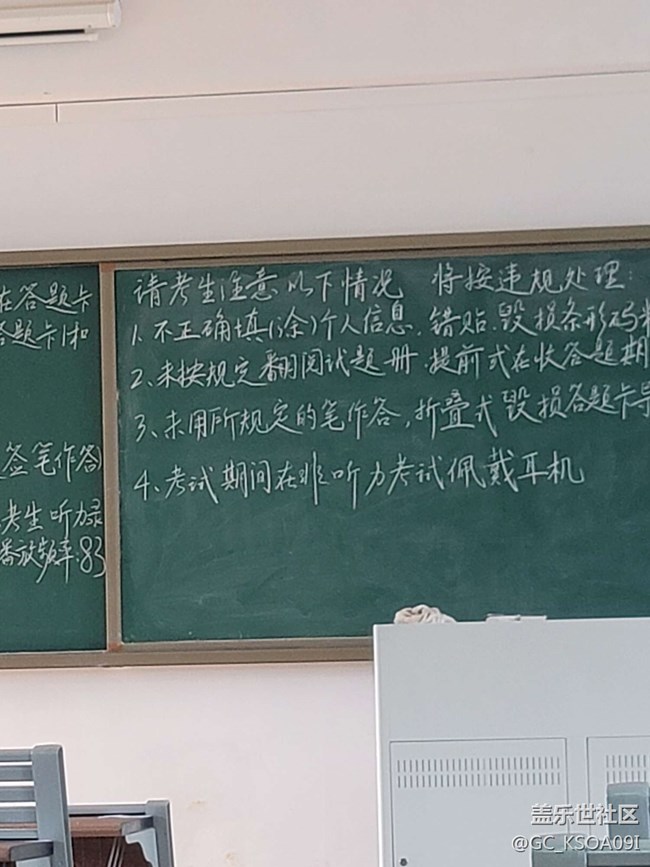 在答题卡
答题卡和
签笔作答)
考生听力录
播放频率:83
请考生注意以下情况 将按违规处理:
1、不正确填(涂)个人信息,错贴、毁损条形码
2、未按规定翻阅试题册 提前或在收答题期
3、未用所规定的笔作答,折叠或毁损答题卡导
4、考试期间在非听力考试佩戴耳机
盖乐世社区
@GC_KSOA09I